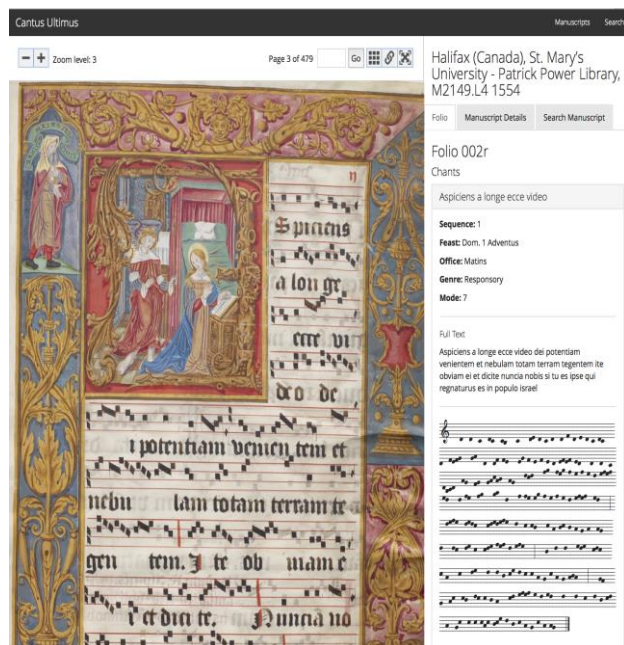 Cantus Ultimus
Manuscripts Search
Zoom level: 3
Page 3 of 479
Go
Spiciens
a lon ge
ecce vi
deo de
i potentiam venien tem et
nebu lam totam terram te
gen tem. I te ob mam e
i et dici te. Nuncia no
Halifax (Canada), St. Mary's
University - Patrick Power Library,
M2149.L4 1554
Folio Manuscript Details Search Manuscript
Folio 002r
Chants
Aspiciens a longe ecce video
Sequence: 1
Feast: Dom. 1 Adventus
Office: Matins
Genre: Responsory
Mode: 7
Full Text
Aspiciens a longe ecce video dei potentiam
venientem et nebulam totam terram tegentem ite
obviam ei et dicite nuncia nobis si tu es ipse qui
regnaturus es in populo israel